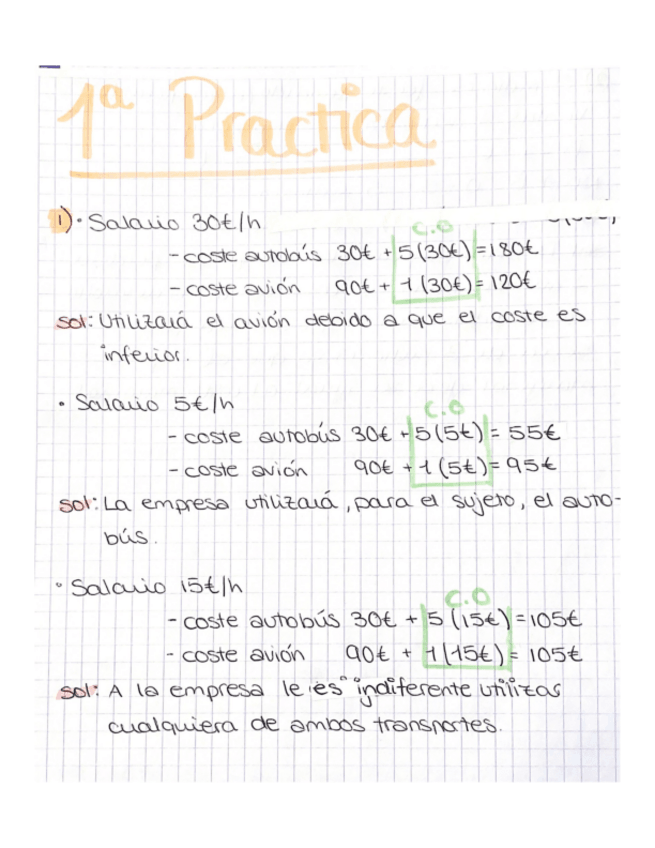 1ª Practica
1) · Salario 30€/h
C.O
- coste autobús 30€ + 5(30€) = 180€
- coste avión 90€ + 1(30€) = 120€
sol: Utilizará el avión debido a que el coste es
inferior.
• Salario 5€/h
C.O
- coste autobús 30€ + 5(5€) = 55€
- coste avión 90€ + 1(5€) = 95€
sol: La empresa utilizará, para el sujeto, el auto-
bús.
• Salario 15€/h
C.O
- coste autobús 30€ + 5(15€) = 105€
- coste avión 90€ + 1(15€) = 105€
sol: A la empresa le es indiferente utilizas
cualquiera de ambos transportes.